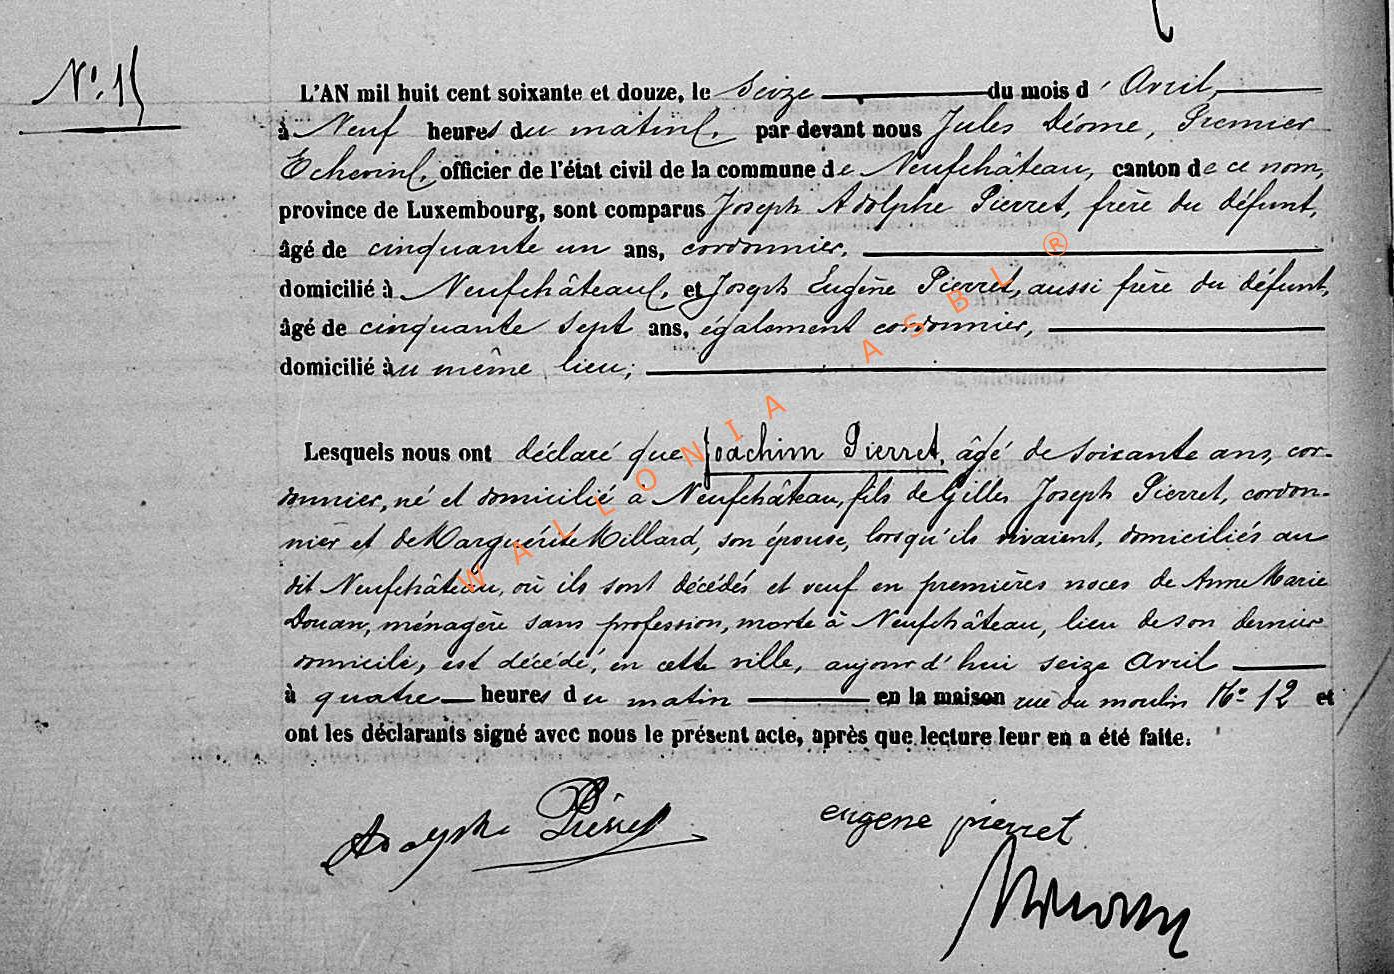 N°. 15
L'AN mil huit cent soixante et douze, le Seize du mois d' Avril,
à Neuf heures du matin, par devant nous Jules Déome, Premier
Echevin, officier de l'état civil de la commune de Neufchâteau, canton de ce nom,
province de Luxembourg, sont comparus Joseph Adolphe Pierret, frère du défunt,
âgé de cinquante un ans, cordonnier,
domicilié à Neufchâteau, et Joseph Eugène Pierret, aussi frère du défunt,
âgé de cinquante sept ans, également cordonnier,
domicilié au même lieu;
Lesquels nous ont déclaré que Joachim Pierret, âgé de soixante ans, cor-
donnier, né et domicilié à Neufchâteau, fils de Gilles Joseph Pierret, cordon-
nier et de Marguérite Millard, son épouse, lorsqu'ils vivaient, domiciliés au
dit Neufchâteau, où ils sont décédés et veuf en premières noces de Anne Marie
Douan, ménagère sans profession, morte à Neufchâteau, lieu de son dernier
domicile, est décédé, en cette ville, aujourd'hui seize Avril
à quatre heures du matin en la maison rue du moulin N° 12 et
ont les déclarants signé avec nous le présent acte, après que lecture leur en a été faite.
Adolphe Pierret
eugene pierret
WALLONIA ASBL ®